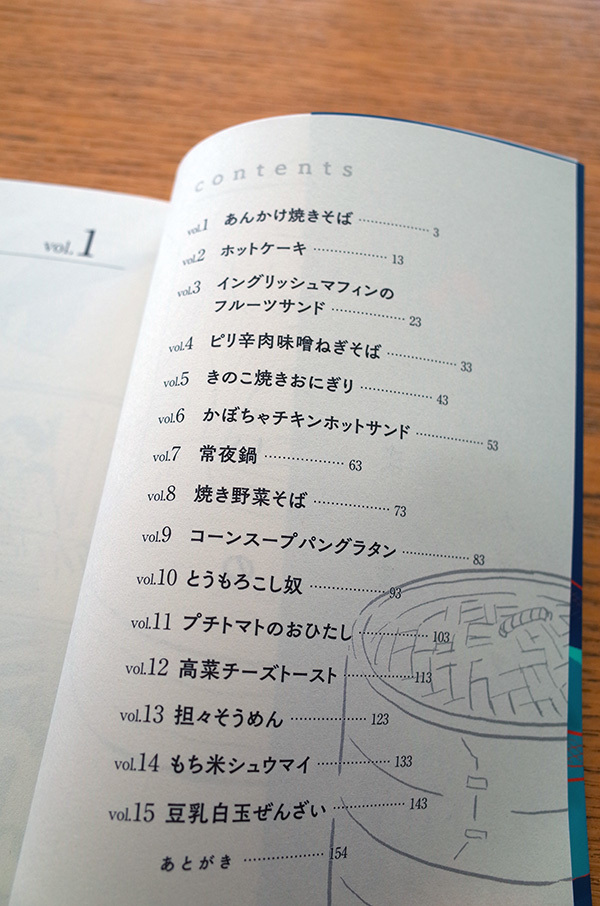 vol.1
contents
vol.1 あんかけ焼きそば ………………… 3
vol.2 ホットケーキ ………………… 13
vol.3 イングリッシュマフィンの
フルーツサンド ………………… 23
vol.4 ピリ辛肉味噌ねぎそば ………………… 33
vol.5 きのこ焼きおにぎり ………………… 43
vol.6 かぼちゃチキンホットサンド ………………… 53
vol.7 常夜鍋 ………………… 63
vol.8 焼き野菜そば ………………… 73
vol.9 コーンスープパングラタン ………………… 83
vol.10 とうもろこし奴 ………………… 93
vol.11 プチトマトのおひたし ………………… 103
vol.12 高菜チーズトースト ………………… 113
vol.13 担々そうめん ………………… 123
vol.14 もち米シュウマイ ………………… 133
vol.15 豆乳白玉ぜんざい ………………… 143
あとがき ………………… 154